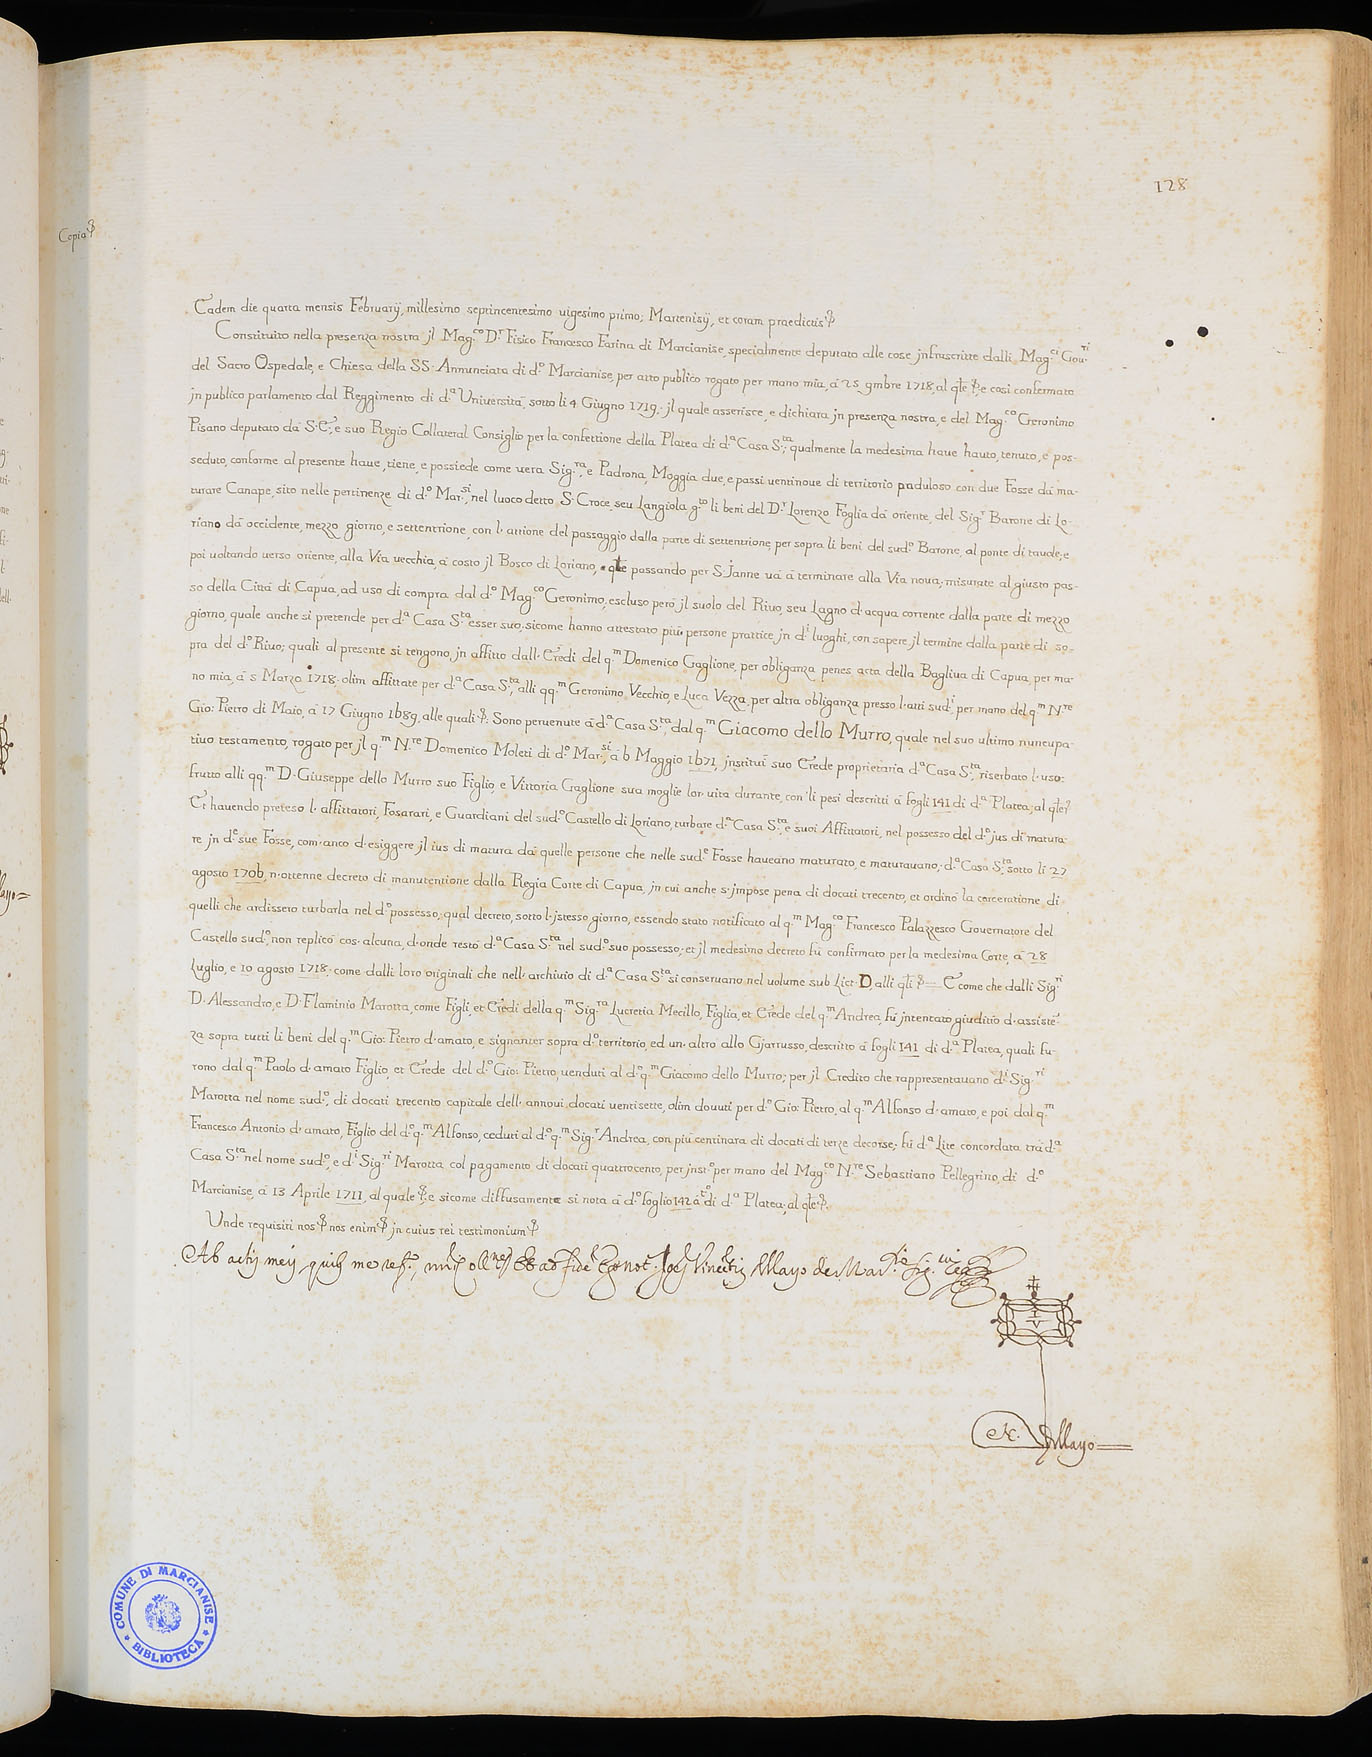 128
Copia
Eadem die quarta mensis Februarij, millesimo septincentesimo uigesimo primo; Martenisij, et coram praedictis
Constituito nella presenza nostra jl Mag.co D.r Fisico Francesco Farina di Marcianise, specialmente deputato alle cose jnfrascritte dalli Mag.ci Gou.ri
del Sacro Ospedale, e Chiesa della SS. Annunciata di d.o Marcianise, per atto publico rogato per mano mia, á 25 9mbre 1718, al qle e cosi confermato
jn publico parlamento dal Reggimento di d.a Università, sotto li 4 Giugno 1719. jl quale asserisce, e dichiara jn presenza nostra, e del Mag.co Geronimo
Pisano deputato dá S. E., e suo Regio Collateral Consiglio per la confettione della Platea di d.a Casa S.ta; qualmente la medesima haue hauto, tenuto, e pos-
seduto, conforme al presente haue, tiene, e possiede come uera Sig.ra, e Padrona, Moggia due, e passi uentinoue di territorio paduloso con due Fosse dá ma-
turare Canape, sito nelle pertinenze di d.o Mar.si, nel luoco detto S. Croce, seu Langiola g.to li beni del D.r Lorenzo Foglia dá oriente, del Sig.r Barone di Lo-
riano dá occidente, mezzo giorno, e settentrione, con l. attione del passaggio dalla parte di settentrione per sopra li beni del sud.o Barone, al ponte di tauole, e
poi uoltando uerso oriente, alla Via uecchia, á costo jl Bosco di Loriano, qle passando per S. Janne uá á terminare alla Via noua; misurate al giusto pas-
so della Cittá di Capua, ad uso di compra dal d.o Mag.co Geronimo, escluso peró jl suolo del Riuo, seu Lagno d. acqua corrente dalla parte di mezzo
giorno, quale anche si pretende per d.a Casa S.ta esser suo, sicome hanno attestato piú persone prattice jn d.i luoghi, con sapere jl termine dalla parte di so-
pra del d.o Riuo; quali al presente si tengono jn affitto dall. Eredi del q.m Domenico Gaglione, per obliganza penes acta della Bagliua di Capua, per ma-
no mia, á 5 Marzo 1718. olim affittate per d.a Casa S.ta, alli qq.m Geronimo Vecchio, e Luca Vezza, per altra obliganza presso l. atti sud.i per mano del q.m N.re
Gio: Pietro di Maio, á 17 Giugno 1689, alle quali Sono peruenute á d.a Casa S.ta, dal q.m Giacomo dello Murro, quale nel suo ultimo nuncupa-
tiuo testamento, rogato per jl q.m N.re Domenico Moleti di d.o Mar.si, á 6 Maggio 1671, jnstituí suo Erede proprietaria d.a Casa S.ta, riserbato l. uso-
frutto alli qq.m D. Giuseppe dello Murro suo Figlio, e Vittoria Gaglione sua moglie lor uita durante, con li pesi descritti á fogli 141 di d.a Platea, al qle
Et hauendo preteso l. affittatori, Fosarari, e Guardiani del sud.o Castello di Loriano, turbare d.a Casa S.ta, e suoi Affittatori, nel possesso del d.o jus di matura-
re jn d.e sue Fosse, com. anco d. esiggere jl ius di matura dá quelle persone che nelle sud.e Fosse haueano maturato, e maturauano, d.a Casa S.ta sotto li 27
agosto 1706, n. ottenne decreto di manutentione dalla Regia Corte di Capua, jn cui anche s. jmpose pena di docati trecento, et ordinó la carceratione di
quelli che ardissero turbarla nel d.o possesso; qual decreto, sotto l. jstesso giorno, essendo stato notificato al q.m Mag.co Francesco Palazzesco Gouernatore del
Castello sud.o, non replicó cos. alcuna, d. onde restó d.a Casa S.ta nel sud.o suo possesso; et jl medesimo decreto fú confirmato per la medesima Corte, á 28
Luglio, e 10 agosto 1718. come dalli loro originali che nell. archiuio di d.a Casa S.ta si conseruano nel uolume sub Lict. D, alli qli E come che dalli Sig.ri
D. Alessandro, e D. Flaminio Marotta, come Figli, et Eredi della q.m Sig.ra Lucretia Mecillo, Figlia, et Erede del q.m Andrea, fú jntentato giuditio d. assisten-
za sopra tutti li beni del q.m Gio: Pietro d. amato, e signanter sopra d.o territorio, ed un. altro allo Gjarrusso, descritto á fogli 141 di d.a Platea, quali fu-
rono dal q.m Paolo d. amato Figlio, et Erede del d.o Gio: Pietro, uenduti al d.o q.m Giacomo dello Murro; per jl Credito che rappresentauano d.i Sig.ri
Marotta nel nome sud.o, di docati trecento capitale dell. annoui docati uentisette, olim douuti per d.o Gio: Pietro, al q.m Alfonso d. amato, e poi dal q.m
Francesco Antonio d. amato, Figlio del d.o q.m Alfonso, ceduti al d.o q.m Sig.r Andrea, con piú centinara di docati di terze decorse. fú d.a Lite concordata trá d.a
Casa S.ta nel nome sud.o, e d.i Sig.ri Marotta col pagamento di docati quattrocento, per jnst.o per mano del Mag.co N.re Sebastiano Pellegrino, di d.o
Marcianise, á 13 Aprile 1711, al quale e sicome diffusamente si nota á d.o foglio 142 á t.o di d.a Platea, al qle
Unde requisiti nos nos enim jn cuius rei testimonium
Ab actis meis Ego not. Vincentius Mayo de Mar.
N. Mayo
COMUNE DI MARCIANISE
BIBLIOTECA